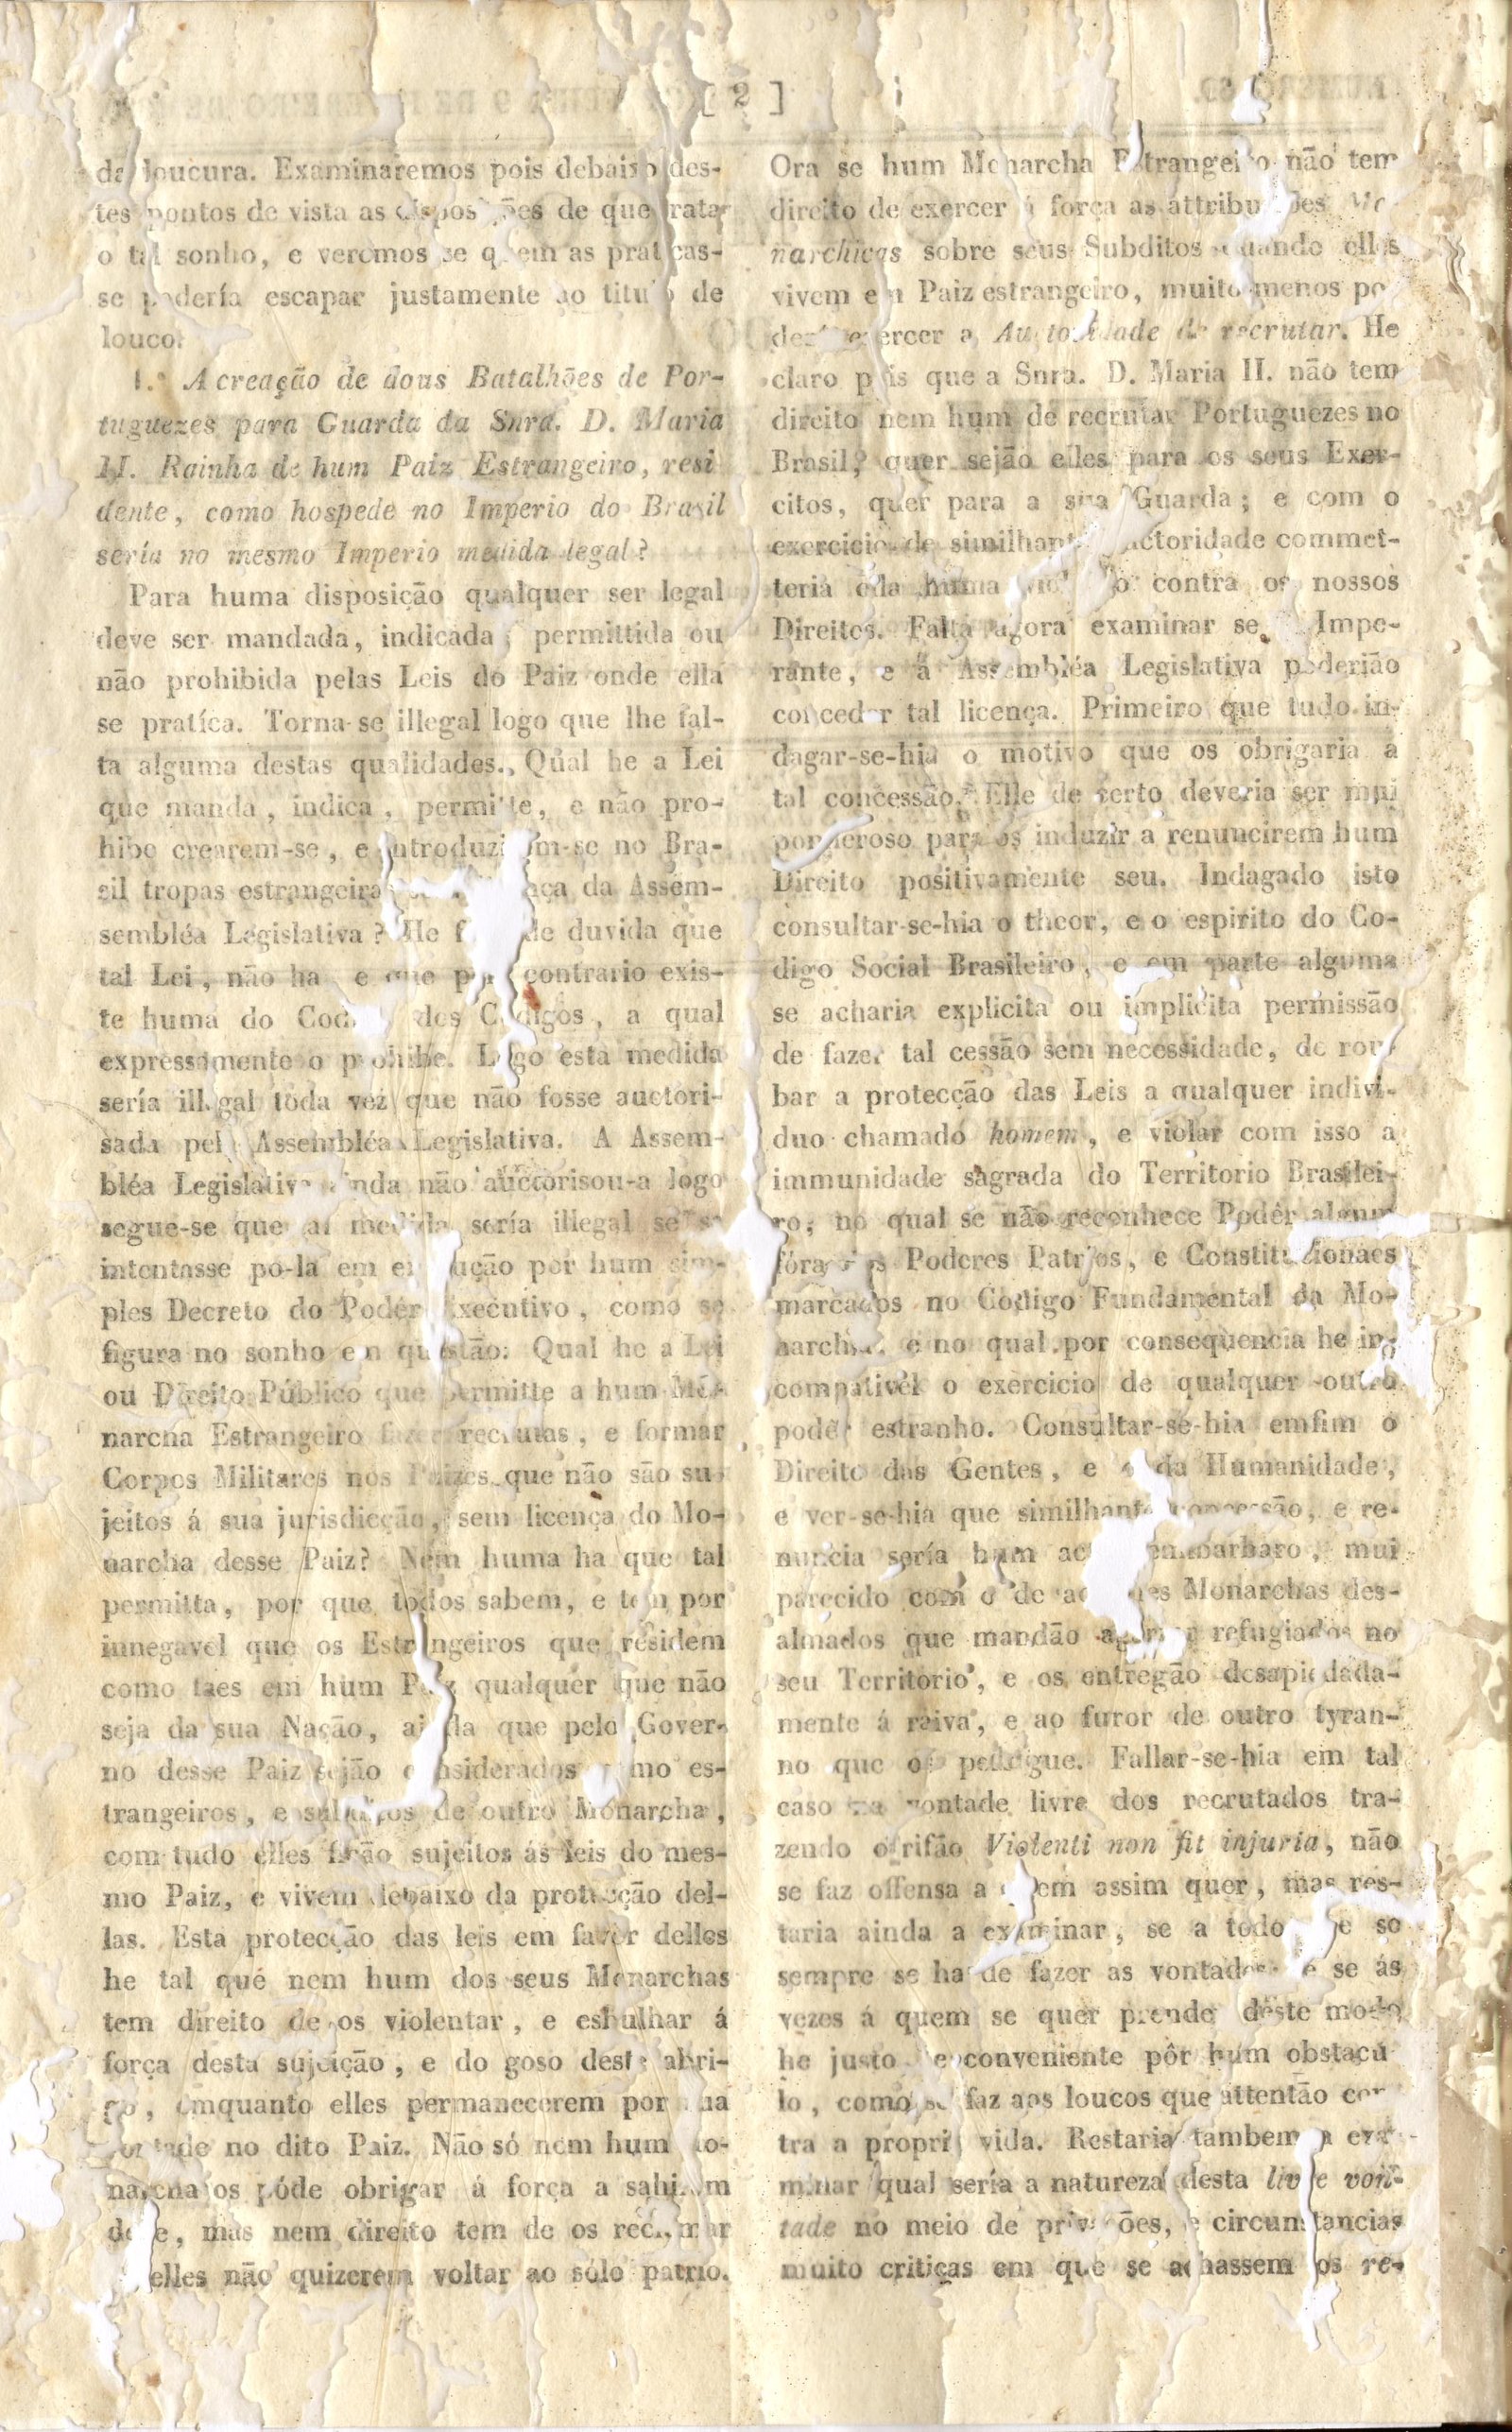 [ 2 ]
da loucura. Examinaremos pois debaixo des-
tes pontos de vista as disposições de que trata
o tal sonho, e veremos se quem as praticas-
se podería escapar justamente ao titulo de
louco.
1.º A creação de dous Batalhões de Por-
tuguezes para Guarda da Snra. D. Maria
II. Rainha de hum Paiz Estrangeiro, resi
dente, como hospede no Imperio do Brasil
sería no mesmo Imperio medida legal?
Para huma disposição qualquer ser legal
deve ser mandada, indicada, permittida ou
não prohibida pelas Leis do Paiz onde ella
se pratíca. Torna-se illegal logo que lhe fal-
ta alguma destas qualidades. Qual he a Lei
que manda, indica, permitte, e não pro-
hibe crearem-se, e introduzirem-se no Bra-
sil tropas estrangeiras da Assem-
sembléa Legislativa? He fóra de duvida que
tal Lei, não ha e que pelo contrario exis-
te huma do Codigo dos Codigos, a qual
expressamente o prohibe. Logo esta medida
sería illegal toda vez que não fosse auctori-
sada pela Assembléa Legislativa. A Assem-
bléa Legislativa ainda não auctorisou-a logo
segue-se que a medida sería illegal se se
intentasse po-la em execução por hum sim-
ples Decreto do Podér Executivo, como se
figura no sonho em questão. Qual he a Lei
ou Direito Público que permitte a hum Mo-
narcha Estrangeiro fazer recrutas, e formar
Corpos Militares nos Paizes que não são su-
jeitos á sua jurisdicção, sem licença do Mo-
narcha desse Paiz? Nem huma ha que tal
permitta, por que todos sabem, e tem por
innegavel que os Estrangeiros que residem
como taes em hum Paiz qualquer que não
seja da sua Nação, ainda que pelo Gover-
no desse Paiz sejão considerados como es-
trangeiros, e subditos de outro Monarcha,
com tudo elles ficão sujeitos ás leis do mes-
mo Paiz, e vivem debaixo da protecção del-
las. Esta protecção das leis em favor delles
he tal que nem hum dos seus Monarchas
tem direito de os violentar, e esbulhar á
força desta sujeição, e do goso deste abri-
go, emquanto elles permanecerem por sua
vontade no dito Paiz. Não só nem hum Mo-
narcha os póde obrigar á força a sahirem
delle, mas nem direito tem de os reclamar
elles não quizerem voltar ao sólo patrio.
Ora se hum Monarcha Estrangeiro não tem
direito de exercer á força as attribuições Mo-
narchicas sobre seus Subditos quando elles
vivem em Paiz estrangeiro, muito menos po-
derá exercer a Auctoridade de recrutar. He
claro pois que a Snra. D. Maria II. não tem
direito nem hum de recrutar Portuguezes no
Brasil, quer sejão elles para os seus Exer-
citos, quer para a sua Guarda; e com o
exercicio de similhante auctoridade commet-
teria ella huma contra os nossos
Direitos. Falta agora examinar se Impe-
rante, e a Assembléa Legislativa poderião
conceder tal licença. Primeiro que tudo in-
dagar-se-hia o motivo que os obrigaria a
tal concessão. Elle de certo deveria ser mui
ponderoso para os induzir a renuncirem hum
Direito positivamente seu. Indagado isto
consultar-se-hia o theor, e o espirito do Co-
digo Social Brasileiro, e em parte alguma
se acharia explicita ou implicita permissão
de fazer tal cessão sem necessidade, de rou-
bar a protecção das Leis a qualquer indivi-
duo chamado homem, e violar com isso a
immunidade sagrada do Territorio Brasilei-
ro, no qual se não reconhece Podér algum
fóra dos Poderes Patrios, e Constitucionaes
marcados no Codigo Fundamental da Mo-
narchia, e no qual por consequencia he in-
compativel o exercicio de qualquer outro
podér estranho. Consultar-se-hia emfim o
Direito das Gentes, e o da Humanidade,
e ver-se-hia que similhante concessão, e re-
nuncia sería hum acto barbaro, mui
parecido com o de Monarchas des-
almados que mandão refugiados no
seu Territorio, e os entregão desapiedada-
mente á raiva, e ao furor de outro tyran-
no que os persegue. Fallar-se-hia em tal
caso na vontade livre dos recrutados tra-
zendo o rifão Violenti non fit injuria, não
se faz offensa a quem assim quer, mas res-
taria ainda a examinar, se a todo que so
sempre se ha de fazer as vontades e se ás
vezes á quem se quer prender deste modo
he justo e conveniente pôr hum obstacu
lo, como se faz aos loucos que attentão con-
tra a propria vida. Restaria tambem a exa-
minar qual sería a natureza desta livre von-
tade no meio de privações, e circunstancias
muito criticas em que se achassem os re-